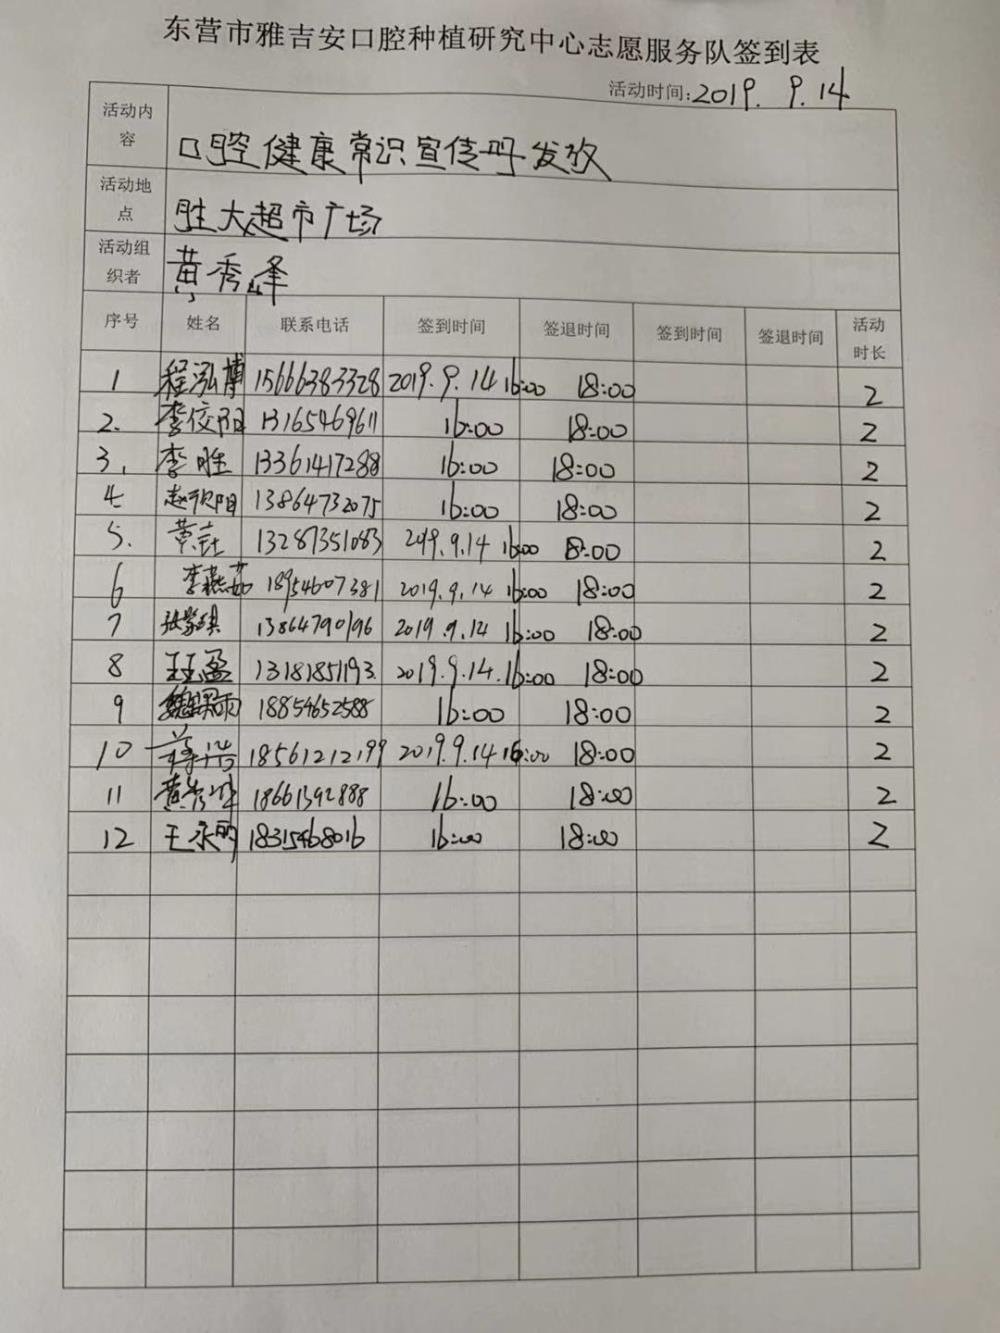 东营市雅吉安口腔种植研究中心志愿服务队签到表
活动时间:2019.9.14
活动内容 口腔健康常识宣传册发放
活动地点 胜大超市广场
活动组织者 黄秀峰
序号 姓名 联系电话 签到时间 签退时间 签到时间 签退时间 活动时长
1 程泓博 15666383328 2019.9.14 16:00 18:00 2
2. 李佼阳 13165469611 16:00 18:00 2
3. 李胜 13361417288 16:00 18:00 2
4 赵阳 13864732075 16:00 18:00 2
5. 黄 13287351083 2019.9.14 16:00 18:00 2
6 李燕茹 18954607381 2019.9.14 16:00 18:00 2
7 张 13864790196 2019.9.14 16:00 18:00 2
8 王玉盈 13181851193. 2019.9.14.16:00 18:00 2
9 魏雨 18854652588 16:00 18:00 2
10 18561212199 2019.9.14 16:00 18:00 2
11 黄秀峰 18661392888 16:00 18:00 2
12 王永明 18315468016 16:00 18:00 2